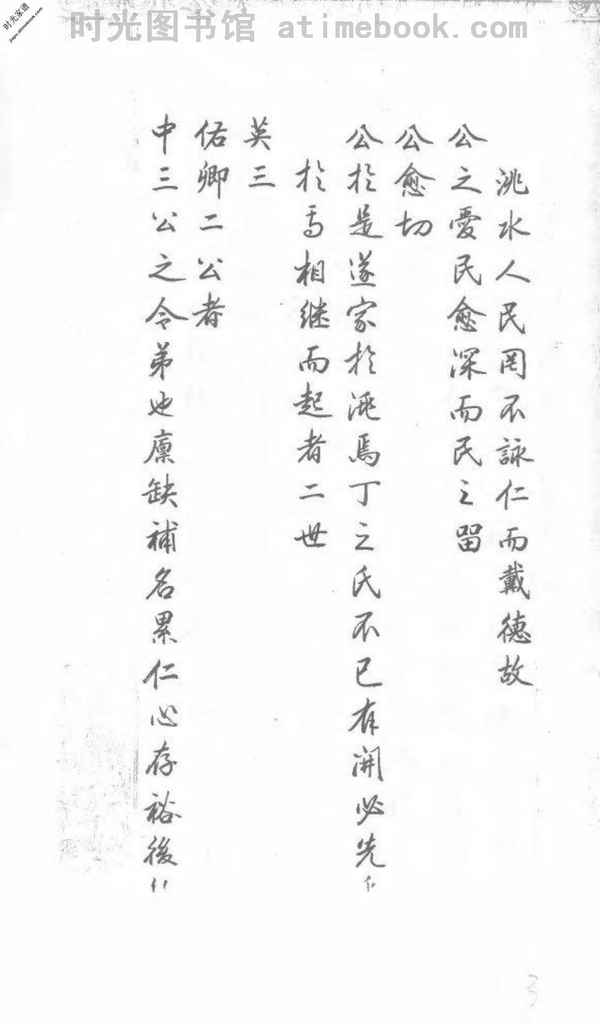 时光图书馆 atimebook.com
时光家谱
洮水人民罔不詠仁而戴德故
公之愛民愈深而民之留
公愈切
公於是遂家於洮焉丁之氏不已有開必先
於焉相继而起者二世
英三
佑卿二公者
中三公之令弟也廩缺補名累仁心存裕後
3